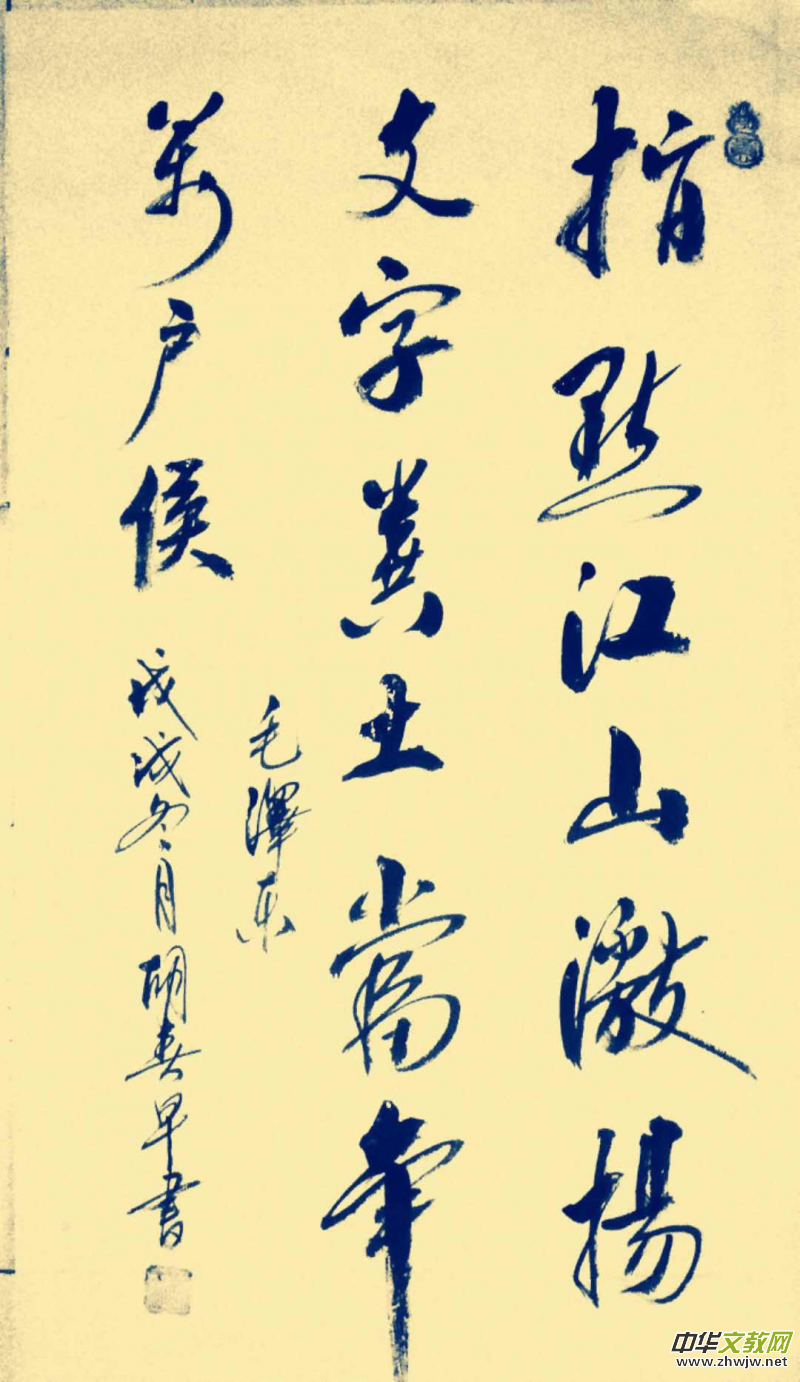 指點江山激揚
文字糞土當年
萬戶侯
毛澤东
戊戌冬月胡春早書
中华文教网
www.zhwjw.net